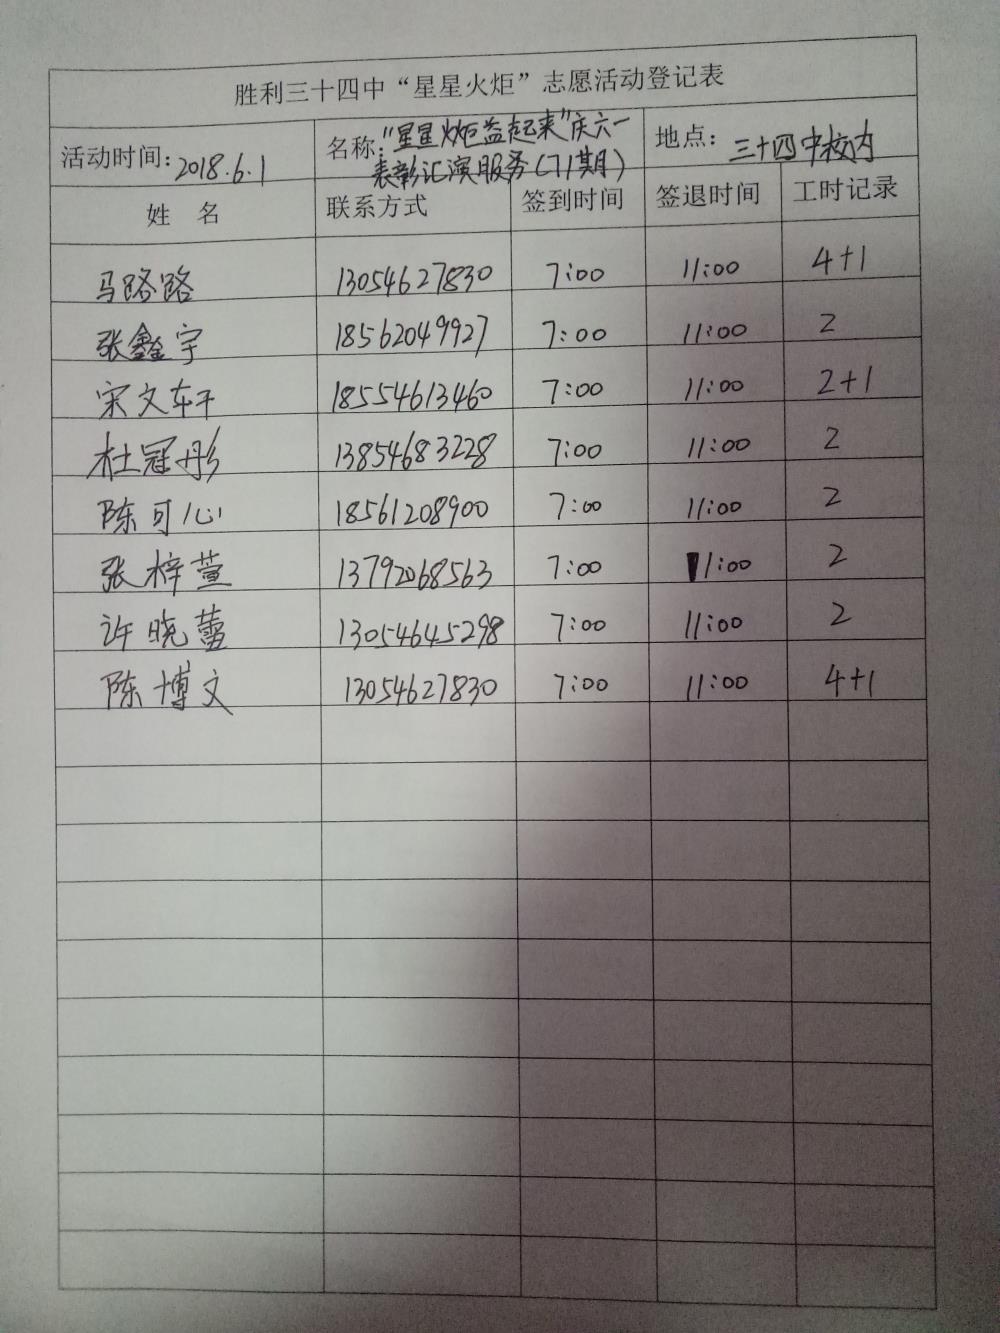 胜利三十四中“星星火炬”志愿活动登记表
活动时间：2018.6.1 名称：“星星火炬益起来”庆六一 地点：三十四中校内
表彰汇演服务（71期）
姓 名 联系方式 签到时间 签退时间 工时记录
马路路 13054627830 7:00 11:00 4+1
张鑫宇 18562049927 7:00 11:00 2
宋文轩 18554613460 7:00 11:00 2+1
杜冠彤 13854683228 7:00 11:00 2
陈可心 18561208900 7:00 11:00 2
张梓萱 13792068563 7:00 11:00 2
许晓蕾 13054645298 7:00 11:00 2
陈博文 13054627830 7:00 11:00 4+1